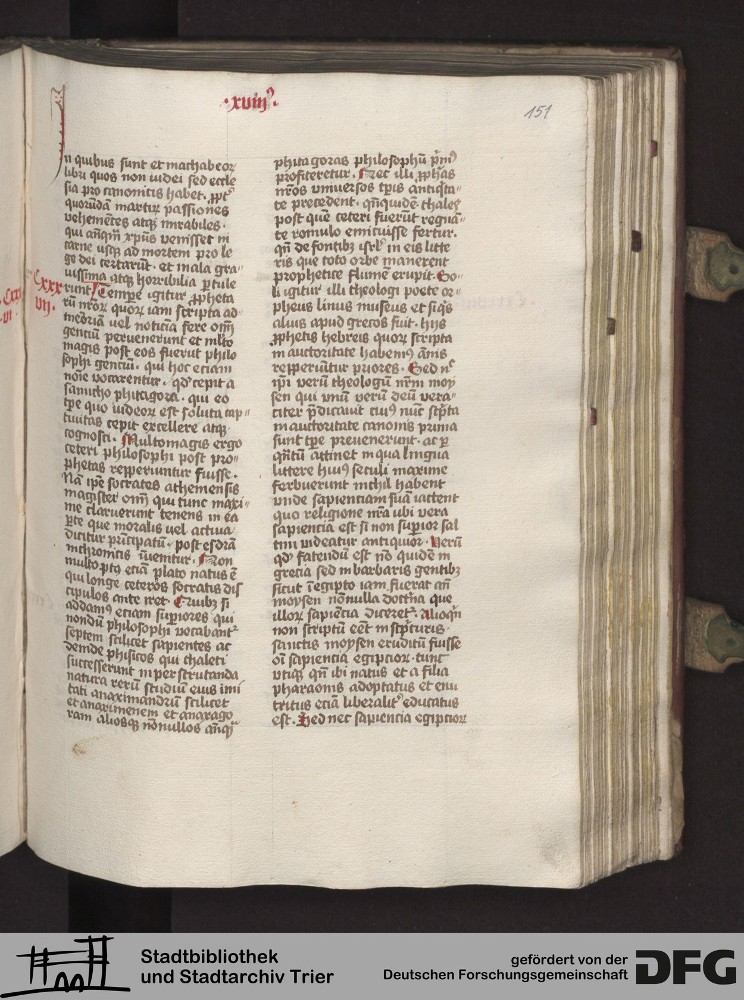 ·xviii·
151
In quibus sunt et machabeoꝝ
libri quos non iudei sed eccle
sia pro canonicis habet. ꝓpt̓
quorūdā martiꝝ passiones
vehemētes atqꝫ mirabiles.
qui anꝙm̄ xp̄us venisset in
carne usqꝫ ad mortem pro le
ge dei certarūt. et mala gra
uissima atqꝫ horribilia ꝑtule
runt Tempe igitur ꝓpheta
cxxx
vij.
rū nr̄oꝝ quoꝝ iam scripta ad
gentiū peruenerunt et ml̓to
magis post eos fuerūt philo
sophi gentiū. qui hoc etiam
noīe vocarentur. qd̓ cepit a
samicho phitagora. qui eo
tpe quo iudeoꝝ est soluta cap
tiuitas cepit excellere atqꝫ
cognosci. Multomagis ergo
ceteri philosophi post pro
phetas repperiuntur fuisse.
Nā ip̄e socrates athemensis
magister om̄ qui tunc maxi
me claruerunt tenens in ea
ꝑte que moralis uel actiua
dicitur pͥncipatū. post esdrā
in chronicis īuenitur. Non
multo pꝰ eciā plato natus ē
qui longe ceteros socratis dis
cipulos ante iret. Quibꝫ si
addamꝰ etiam supiores qui
nondū philosophi vocabantᷣ
septem scilicet sapientes ac
deinde phisicos qui thaleti
successerunt in perscrutanda
natura rerū studiū eius imi
tati anaximandrū scilicet
et anaximenem et anaxago
ram aliosqꝫ nōnullos anꝙ̄
phitagoras philosophū pͥmꝰ
profiteretur. Nec illi ꝓph̄as
nr̄os vniuersos tp̄is antiq̄ta
te precedent. qn̄quidē thales
post quē ceteri fuerūt regnā
te romulo emicuisse fertur.
qn̄ de fontibꝫ isrl̓ in eis litte
ris que toto orbe manerent
prophetice flumē erupit. So
li igitur illi theologi poete or
pheus linus museus et si qͥs
alius apud grecos fuit. hijs
ꝓphetis hebreis quoꝝ scripta
in auctoritate habemꝰ ānis
repperiūtur priores. Sed nͨ
ip̄i verū theologiū nr̄m moy
sen qui vnū verū deū vera
citer p̄dicauit cuiꝰ nūc scͥpta
in auctoritate canonis prima
sunt tp̄e preuenerunt. ac ꝑ
qn̄tū attinet in qua lingua
littere huiꝰ seculi maxime
ferbuerunt nichil habent
vnde sapientiam suā iactent
quo religione nr̄a ubi vera
sapiencia est si non supior sal
tim videatur antiquior. Verū
qd̓ fatendū est nō quidē in
grecia sed in barbaris gentibꝫ
sicut ī egipto iam fuerat an̄
moysen nōnulla doctͥna que
illoꝝ sapiēcia diceretᷣ. Alioqn̄
non scriptū eēt in scͥpturis
sanctis moysen eruditū fuisse
oī sapiencia egiptioꝝ. tunc
vtiqꝫ qn̄ ibi natus et a filia
pharaonis adoptatus et enu
tritus eciā liberalitᷣ educatus
est. Sed nec sapiencia egiptioꝝ
Stadtbibliothek
und Stadtarchiv Trier
gefördert von der
Deutschen Forschungsgemeinschaft
DFG